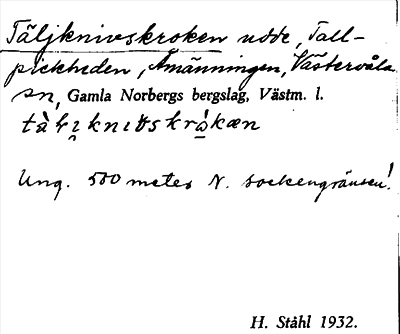 Täljknivskroken udde, Tall-
heden, Åmänningen, Västervåla
sn, Gamla Norbergs bergslag, Västm. l.
Ung. 500 meter N. sockengränsen!
H. Ståhl 1932.